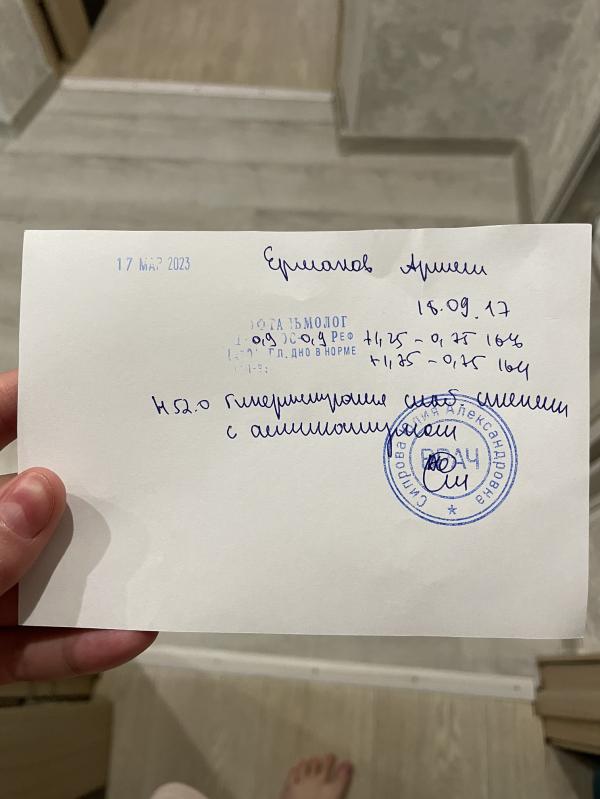 17 МАР 2023
Ермаков
18.09.17
ОФТАЛЬМОЛОГ
0,9 OS-0,9 РЕФ +1,25 - 0,75
ГЛ. ДНО В НОРМЕ +1,75 - 0,75
H 52.0 Гиперметропия слаб. степени
с астигматизмом
Александровна
ВРАЧ